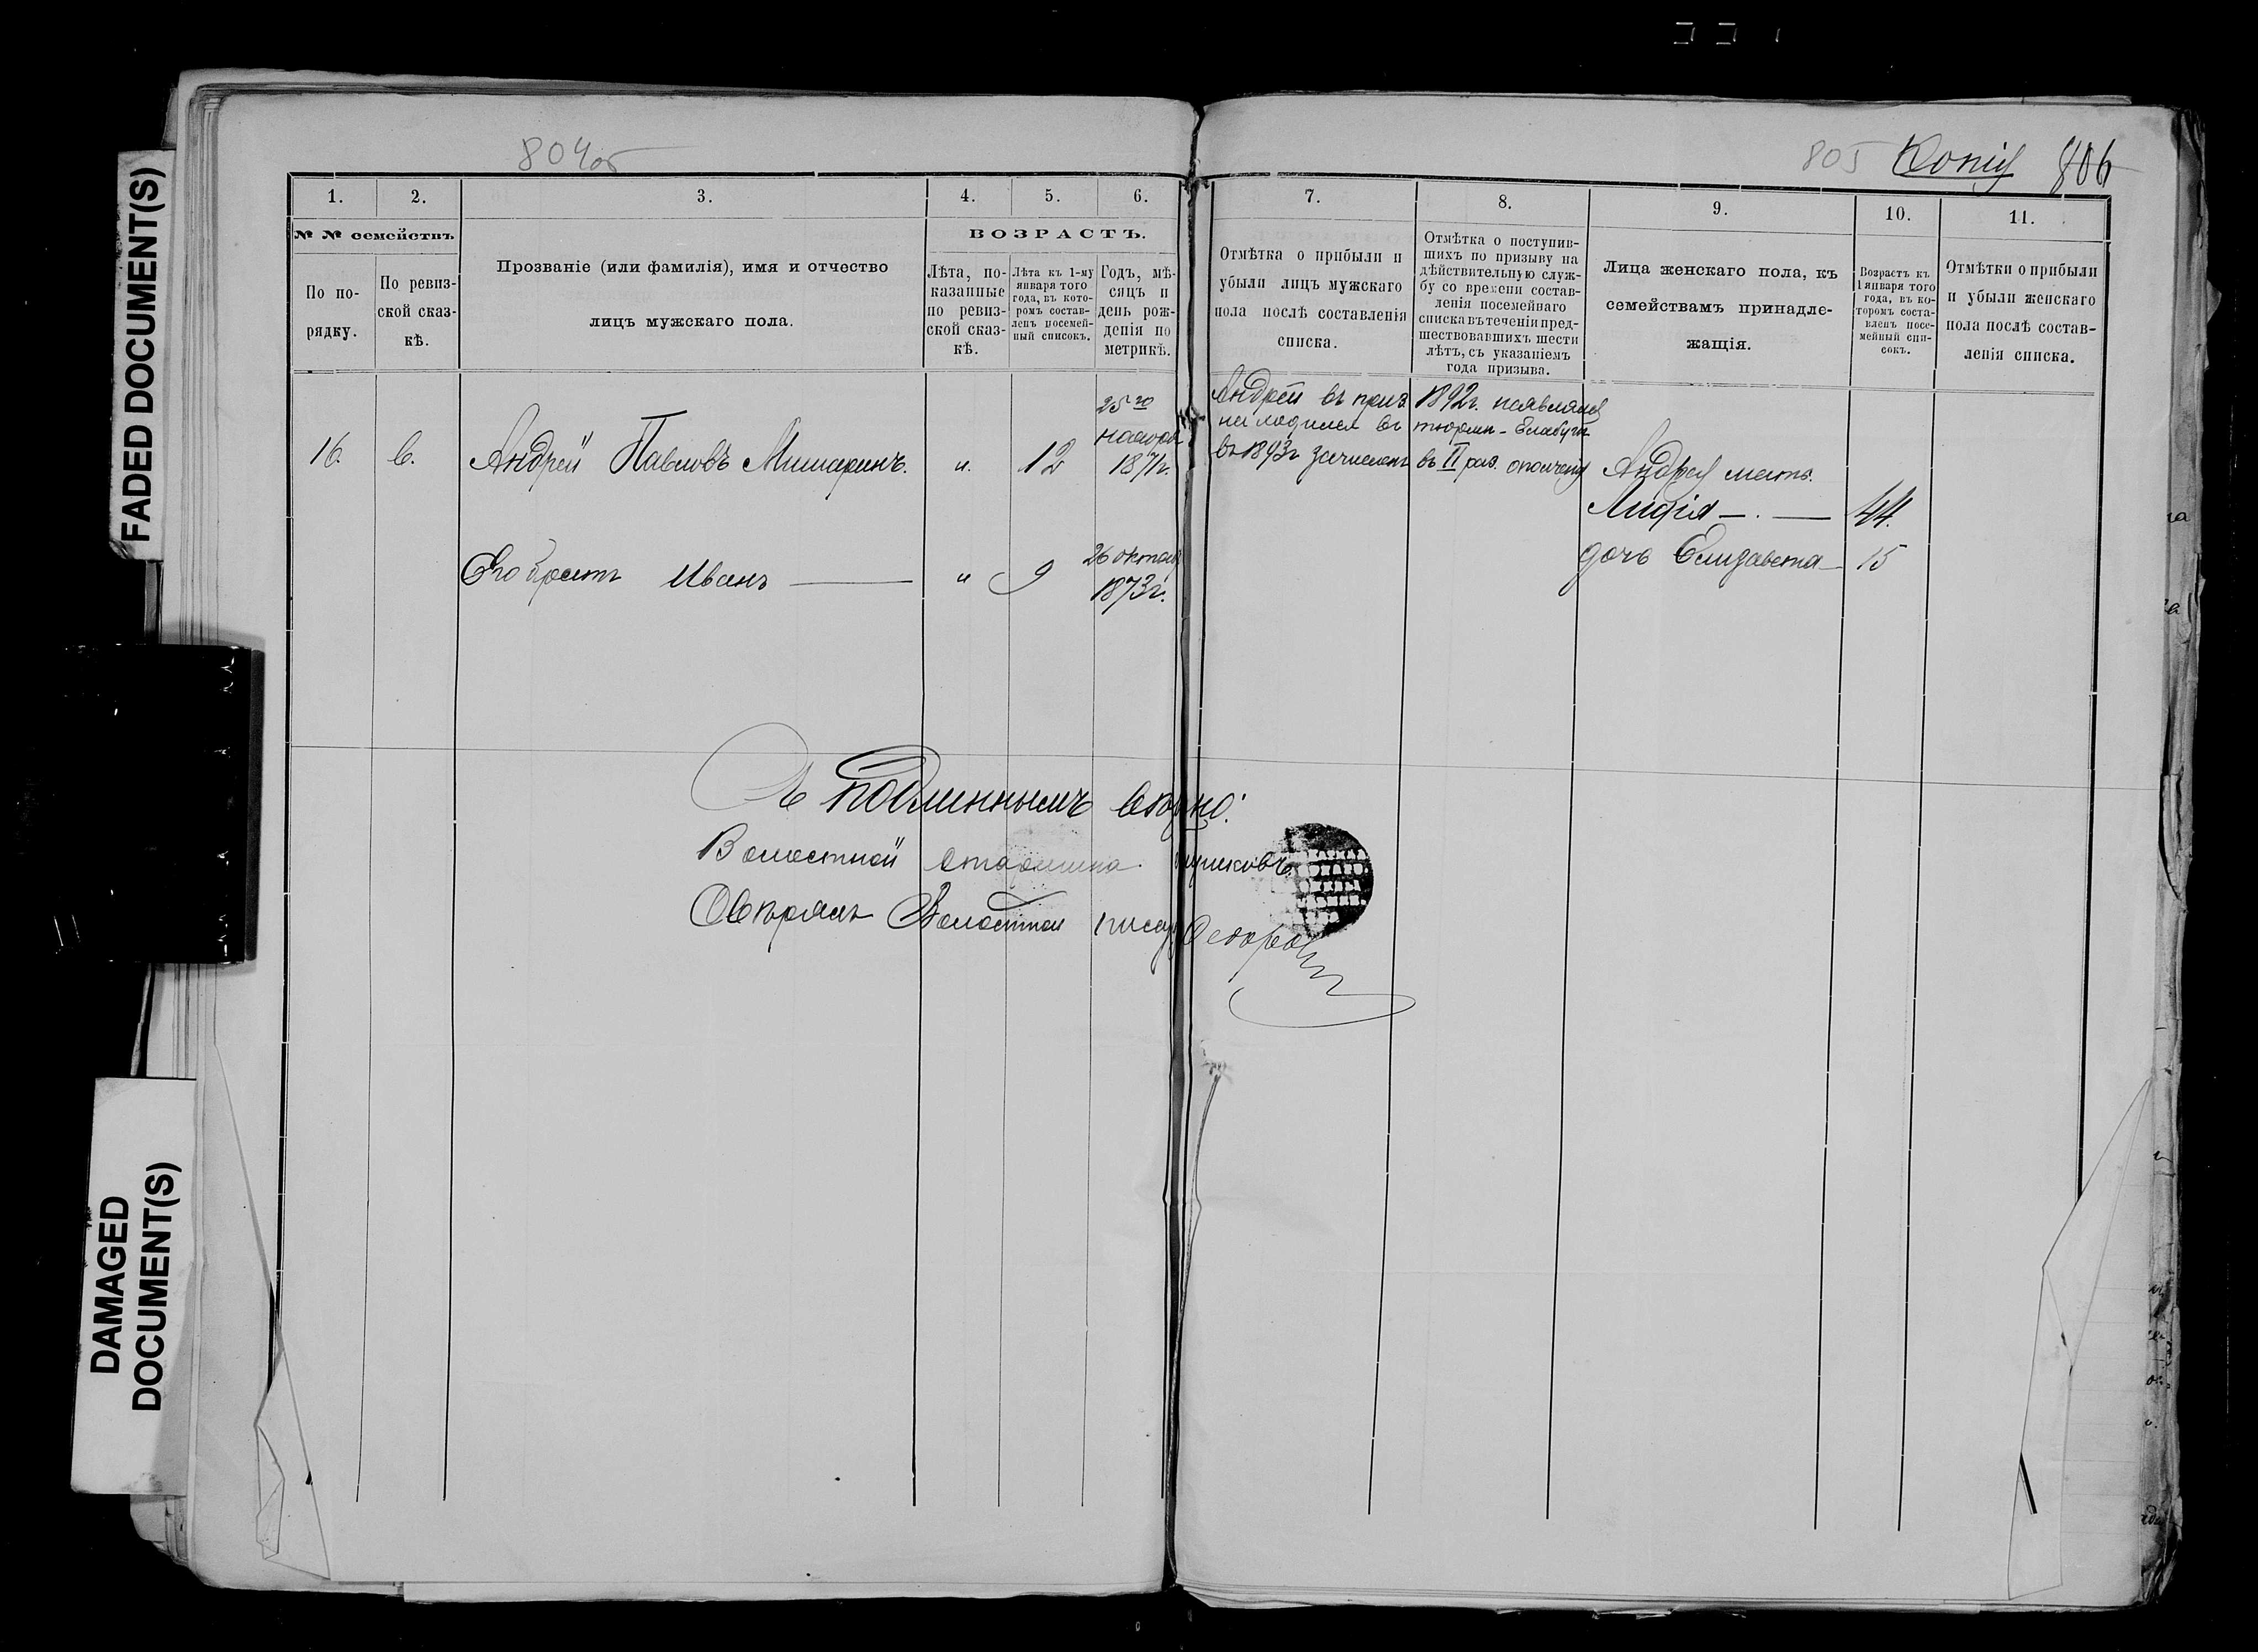 FADED DOCUMENT(S)
DAMAGED
DOCUMENT(S)
804об
805 Копія 806
1. 2. 3. 4. 5. 6.
№ № семействъ.
По по-
рядку.
По ревиз-
ской сказ-
кѣ.
Прозваніе (или фамилія), имя и отчество
лицъ мужскаго пола.
ВОЗРАСТЪ.
Лѣта, по-
казанные
по ревиз-
ской сказ-
кѣ.
Лѣта къ 1-му
января того
года, въ кото-
ромъ состав-
ленъ посемей-
ный списокъ.
Годъ, мѣ-
сяцъ и
день рож-
денія по
метрикѣ.
7. 8. 9. 10. 11.
Отмѣтка о прибыли и
убыли лицъ мужскаго
пола послѣ составленія
списка.
Отмѣтка о поступив-
шихъ по призыву на
дѣйствительную служ-
бу со времени состав-
ленія посемейнаго
списка въ теченіи пред-
шествовавшихъ шести
лѣтъ, съ указаніемъ
года призыва.
Лица женскаго пола, къ
семействамъ принадле-
жащія.
Возрастъ къ
1 января того
года, въ ко-
торомъ соста-
вленъ посе-
мейный спи-
сокъ.
Отмѣтки о прибыли
и убыли женскаго
пола послѣ состав-
ленія списка.
16. 6. Андрей Павловъ Мишаринъ. "
12
25го
1871г.
Его братъ Иванъ — " 9
26 октяб
1873г.
Андрей въ приз. 1892г. неявлялся
въ тюрьм- Елабуги
въ 1893г зачисленъ въ II раз. ополченія
Андрея мать.
Лидія — . — 44.
дочь Елизавета — 15
Съ подлиннымъ вѣрно:
Волостной старшина
Свѣрялъ Волостной писарь